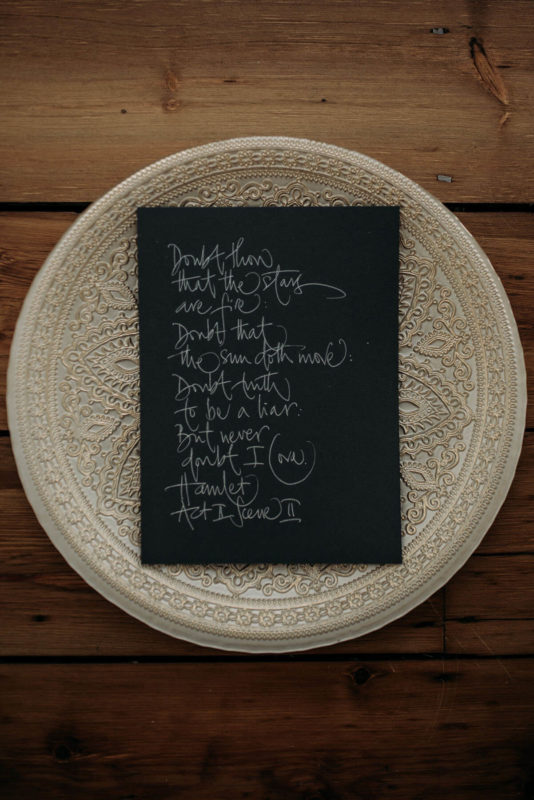 Doubt thou
that the stars
are fire:
Doubt that
the sun doth move:
Doubt truth
to be a liar:
But never
doubt I love.
Hamlet
Act II Scene II